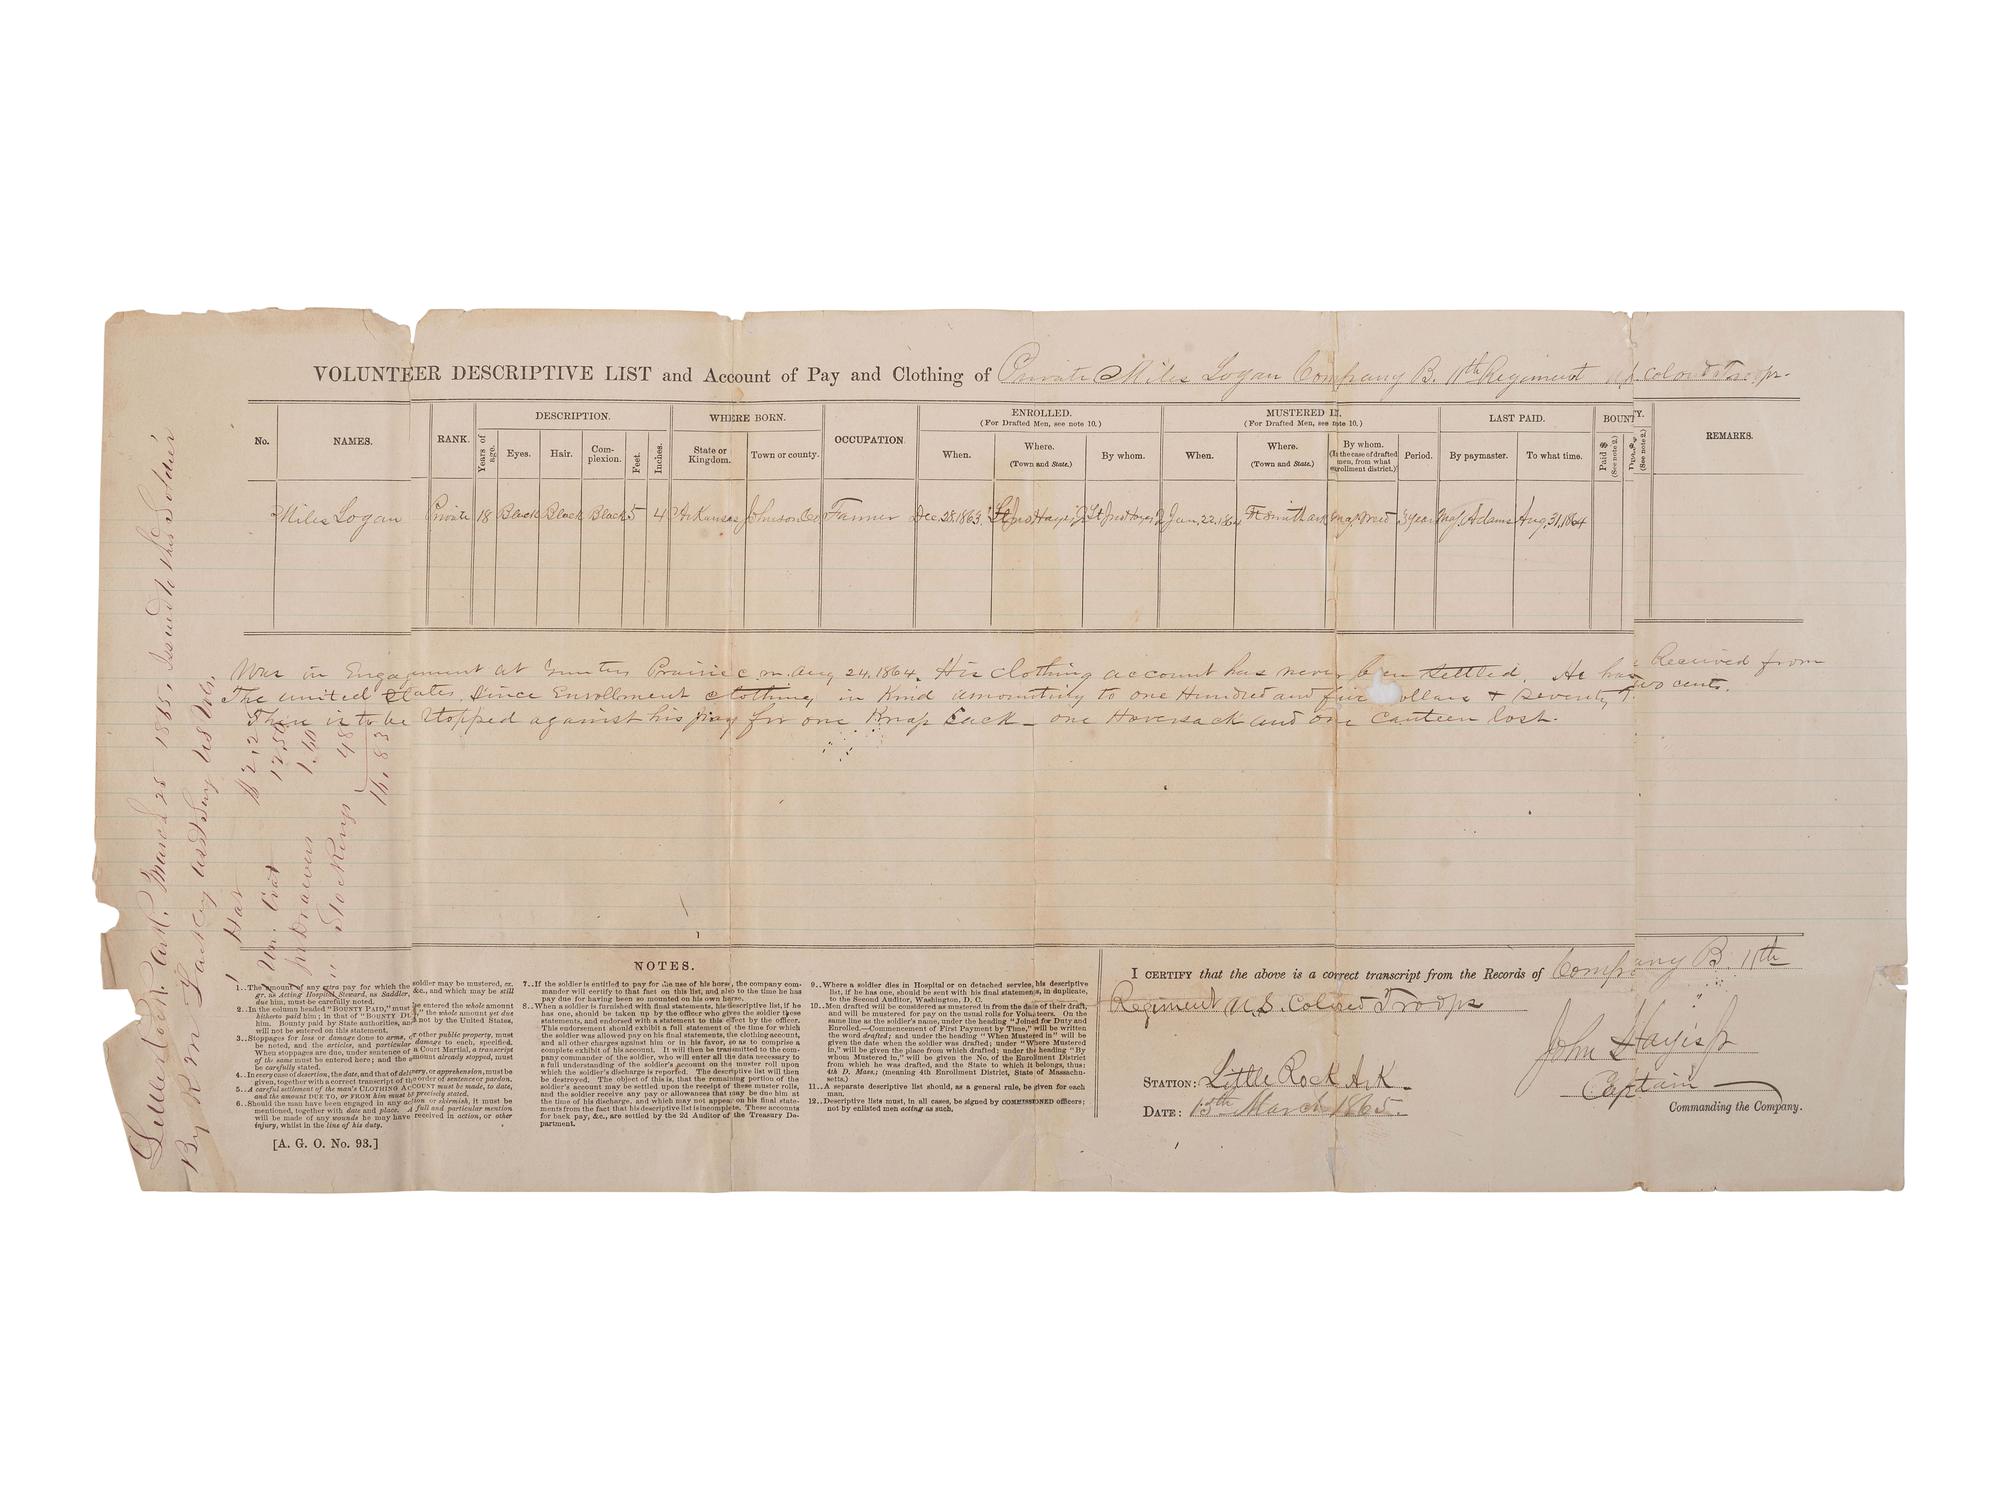 VOLUNTEER DESCRIPTIVE LIST and Account of Pay and Clothing of Private Miles Logan Company B. 11th Regiment U.S. Colored Troops.
No. NAMES. RANK. DESCRIPTION. WHERE BORN. OCCUPATION. ENROLLED. MUSTERED IN. LAST PAID. BOUNTY. REMARKS.
(For Drafted Men, see note 10.) (For Drafted Men, see note 10.)
Years of age. Eyes. Hair. Complexion. Feet. Inches. State or Kingdom. Town or county. When. Where. (Town and State.) By whom. When. Where. (Town and State.) By whom. (In the case of drafted men, from what enrollment district.) Period. By paymaster. To what time. Paid $ (See note 2.) Due $ (See note 2.)
Miles Logan Private 18 Black Black Black 5 4 Arkansas Johnson Co Farmer Dec. 28, 1863. Lt Jno Hayes Jr Lt Jno Hayes Jr Jan. 22, 1864 Ft Smith Ark Maj. Weed 3 year Maj. Adams Aug, 31, 1864
Was in Engagement at Gunters Prairie C. N. Aug 24, 1864. His clothing account has never been settled. He has Received from
The united States since Enrollment clothing in Kind amounting to one Hundred and five dollars & seventy two cents.
There is to be stopped against his pay for one Knap Sack – one Haversack and one Canteen lost.
NOTES.
1..The amount of any extra pay for which the soldier may be mustered, ex.
gr. as Acting Hospital Steward, as Saddler, &c., and which may be still
due him, must be carefully noted.
2..In the column headed "BOUNTY PAID," must be entered the whole amount
hitherto paid him; in that of "BOUNTY DUE," the whole amount yet due
him. Bounty paid by State authorities, and not by the United States,
will not be entered on this statement.
3..Stoppages for loss or damage done to arms, or other public property, must
be noted, and the articles, and particular damage to each, specified.
When stoppages are due, under sentence of a Court Martial, a transcript
of the same must be entered here; and the amount already stopped, must
be carefully stated.
4..In every case of desertion, the date, and that of delivery, or apprehension, must be
given, together with a correct transcript of the order of sentence or pardon.
5..A careful settlement of the man's CLOTHING ACCOUNT must be made, to date,
and the amount DUE TO, or FROM him must be precisely stated.
6..Should the man have been engaged in any action or skirmish, it must be
mentioned, together with date and place. A full and particular mention
will be made of any wounds he may have received in action, or other
injury, whilst in the line of his duty.
[A. G. O. No. 93.]
7..If the soldier is entitled to pay for the use of his horse, the company com-
mander will certify to that fact on this list, and also to the time he has
pay due for having been so mounted on his own horse.
8..When a soldier is furnished with final statements, his descriptive list, if he
has one, should be taken up by the officer who gives the soldier these
statements, and endorsed with a statement to this effect by the officer.
This endorsement should exhibit a full statement of the time for which
the soldier was allowed pay on his final statements, the clothing account,
and all other charges against him or in his favor, so as to comprise a
complete exhibit of his account. It will then be transmitted to the com-
pany commander of the soldier, who will enter all the data necessary to
a full understanding of the soldier's account on the muster roll upon
which the soldier's discharge is reported. The descriptive list will then
be destroyed. The object of this is, that the remaining portion of the
soldier's account may be settled upon the receipt of these muster rolls,
and the soldier receive any pay or allowances that may be due him at
the time of his discharge, and which may not appear on his final state-
ments from the fact that his descriptive list is incomplete. These accounts
for back pay, &c., are settled by the 2d Auditor of the Treasury De-
partment.
9..Where a soldier dies in Hospital or on detached service, his descriptive
list, if he has one, should be sent with his final statements, in duplicate,
to the Second Auditor, Washington, D. C.
10..Men drafted will be considered as mustered in from the date of their draft,
and will be mustered for pay on the usual rolls for Volunteers. On the
same line as the soldier's name, under the heading "Joined for Duty and
Enrolled.—Commencement of First Payment by Time," will be written
the word drafted; and under the heading "When Mustered in" will be
given the date when the soldier was drafted; under "Where Mustered
in," will be given the place from which drafted; under the heading "By
whom Mustered in," will be given the No. of the Enrollment District
from which he was drafted, and the State to which it belongs, thus:
4th D. Mass.; (meaning 4th Enrollment District, State of Massachu-
setts.)
11..A separate descriptive list should, as a general rule, be given for each
man.
12..Descriptive lists must, in all cases, be signed by COMMISSIONED officers;
not by enlisted men acting as such.
I CERTIFY that the above is a correct transcript from the Records of Company B. 11th
Regiment U.S. Colored Troops
John Hayes Jr
Captain
Commanding the Company.
STATION: Little Rock Ark
DATE: 15th March 1865.
Ark. March 25 1865. Issued to this Soldier
By
1 Hat $ 2,12
Un. Coat 12.50
pr Drawers 1.
" Stockings 48
16,83